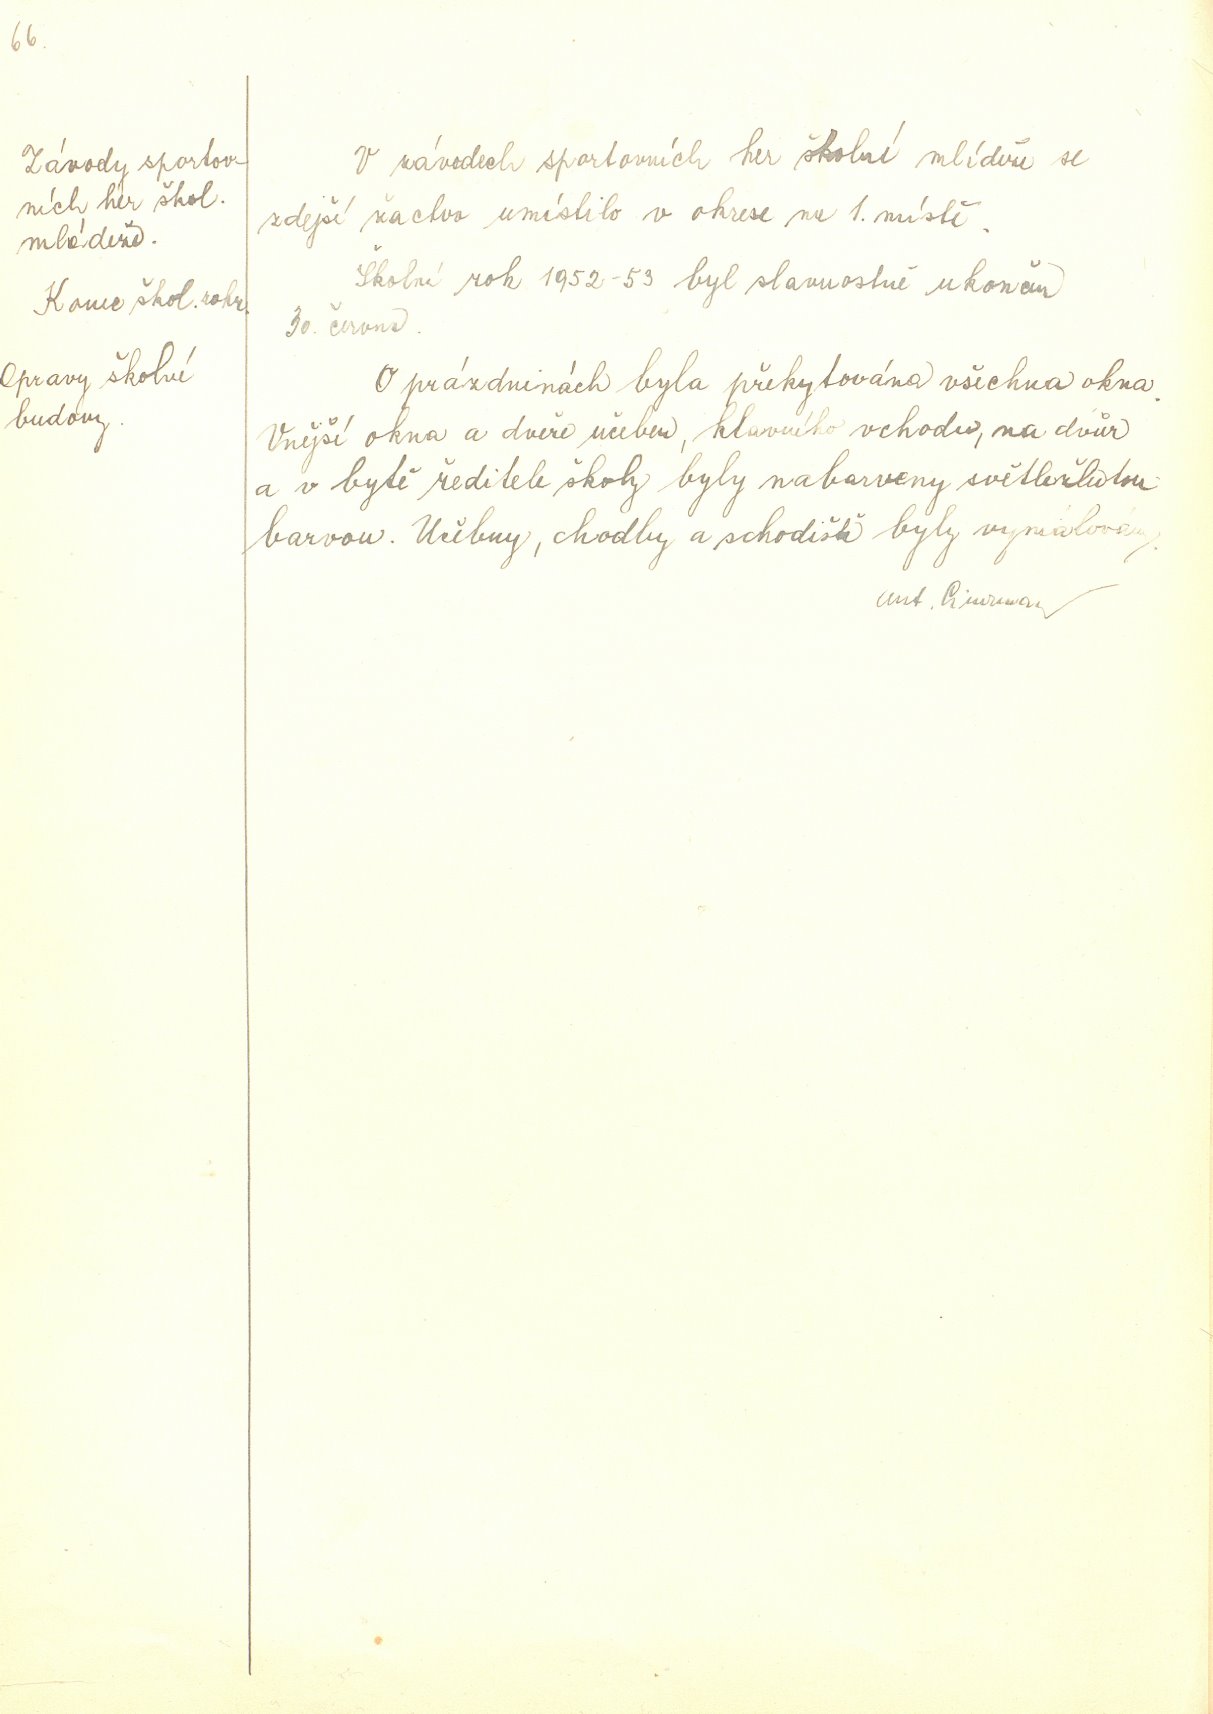 66.
Závody sportov-
ních her škol.
mládeže.
V závodech sportovních her školní mládeže se
zdejší žactvo umístilo v okrese na 1. místě.
Konec škol. roku.
Školní rok 1952-53 byl slavnostně ukončen
30. června.
Opravy školní
budovy.
O prázdninách byla překytována všechna okna.
Vnější okna a dveře učeben, hlavního vchodu, na dvůr
a v bytě ředitele školy byly nabarveny světležlutou
barvou. Učebny, chodby a schodiště byly vymalovány.
Ant.